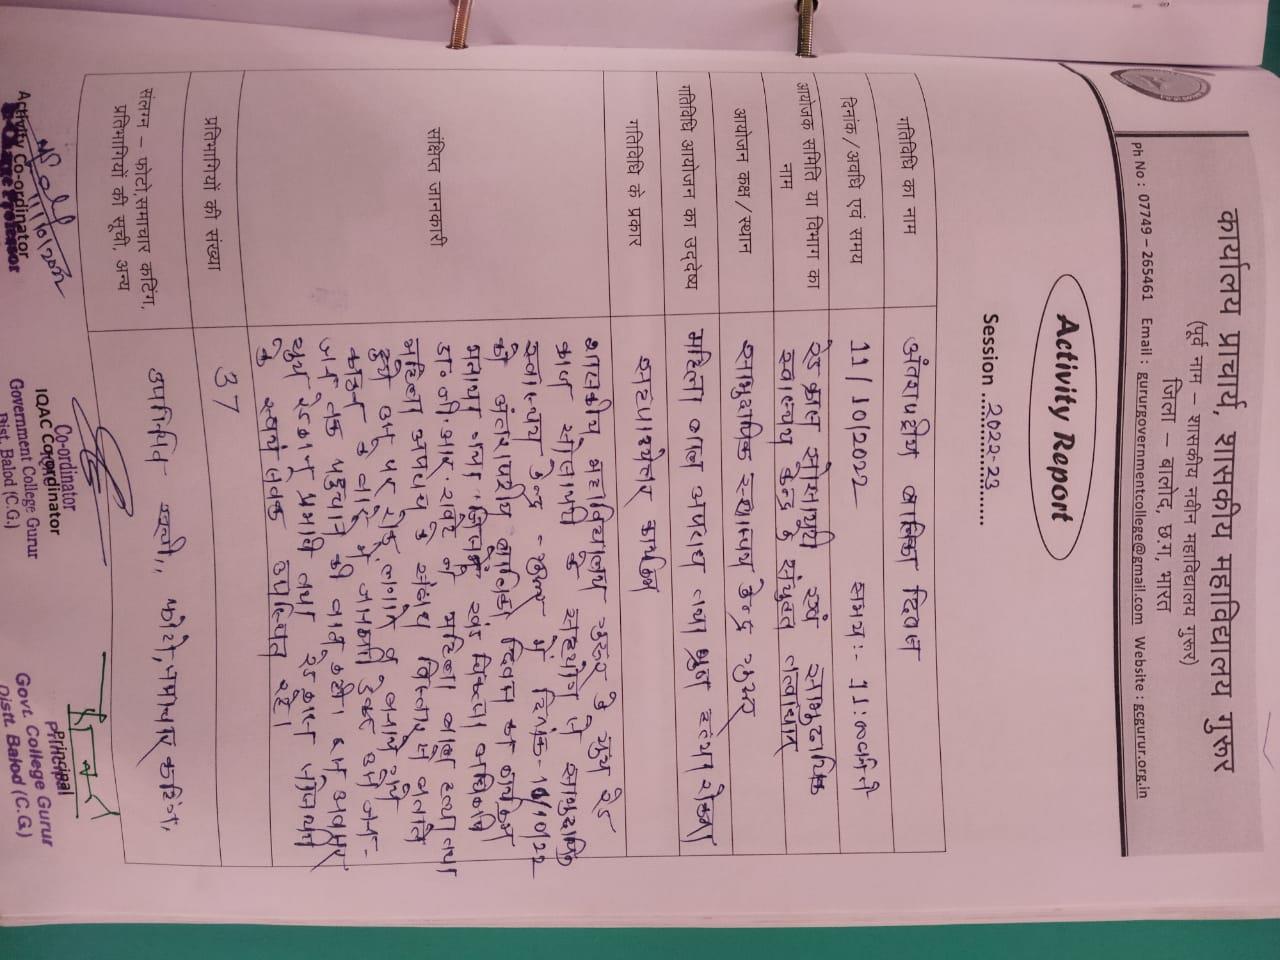 कार्यालय प्राचार्य, शासकीय महाविद्यालय गुरूर
(पूर्व नाम – शासकीय नवीन महाविद्यालय गुरूर)
जिला – बालोद, छग, भारत
Ph No : 07749 – 265461 Email : gururgovernmentcollege@gmail.com Website : gcgurur.org.in
Activity Report
Session 2022-23
गतिविधि का नाम
अंतराष्ट्रीय बालिका दिवस
दिनांक/अवधि एवं समय
11/10/2022 समय:- 11:00
आयोजक समिति या विभाग का नाम
रेडक्रास सोसायटी एवं सामुदायिक
स्वास्थ्य केन्द्र के संयुक्त तत्वाधान
आयोजन कक्ष/स्थान
सामुदायिक स्वास्थ्य केन्द्र गुरूर
गतिविधि आयोजन का उद्देष्य
महिला बाल अपराध तथा भ्रुण हत्या रोकना
गतिविधि के प्रकार
कार्यक्रम
संक्षिप्त जानकारी
शासकीय महाविद्यालय गुरूर के यूथ रेड
क्रास सोसायटी के सहयोग से सामुदायिक
स्वास्थ्य केन्द्र - गुरूर में दिनांक- 11/10/22
को अंतराष्ट्रीय बालिका दिवस का कार्यक्रम
मनाया गया जिसमें खंड चिकित्सा अधिकारी
डॉ० जी.आर. रावटे ने महिला बाल हत्या तथा
महिला अपराध के संबंध विस्तार से बताते
हुये उन पर रोक लगाने व बनाये गये
कानून के बारे में जानकारी देकर उसे जन-
जन तक पहुचाने की बात कही। इस अवसर
यूथ रेडक्रास प्रभारी तथा रेडक्रास
के स्वयं सेवक उपस्थित रहे।
प्रतिभागियों की संख्या
37
संलग्न – फोटो,समाचार कटिंग,
प्रतिभागियों की सूची, अन्य
उपस्थिति फोटो, समाचार कटिंग,
11/10/2022
Activity Co-ordinator
Co-ordinator
IQAC Co-ordinator
Government College Gurur
Dist. Balod (C.G.)
Principal
Govt. College Gurur
Distt. Balod (C.G.)